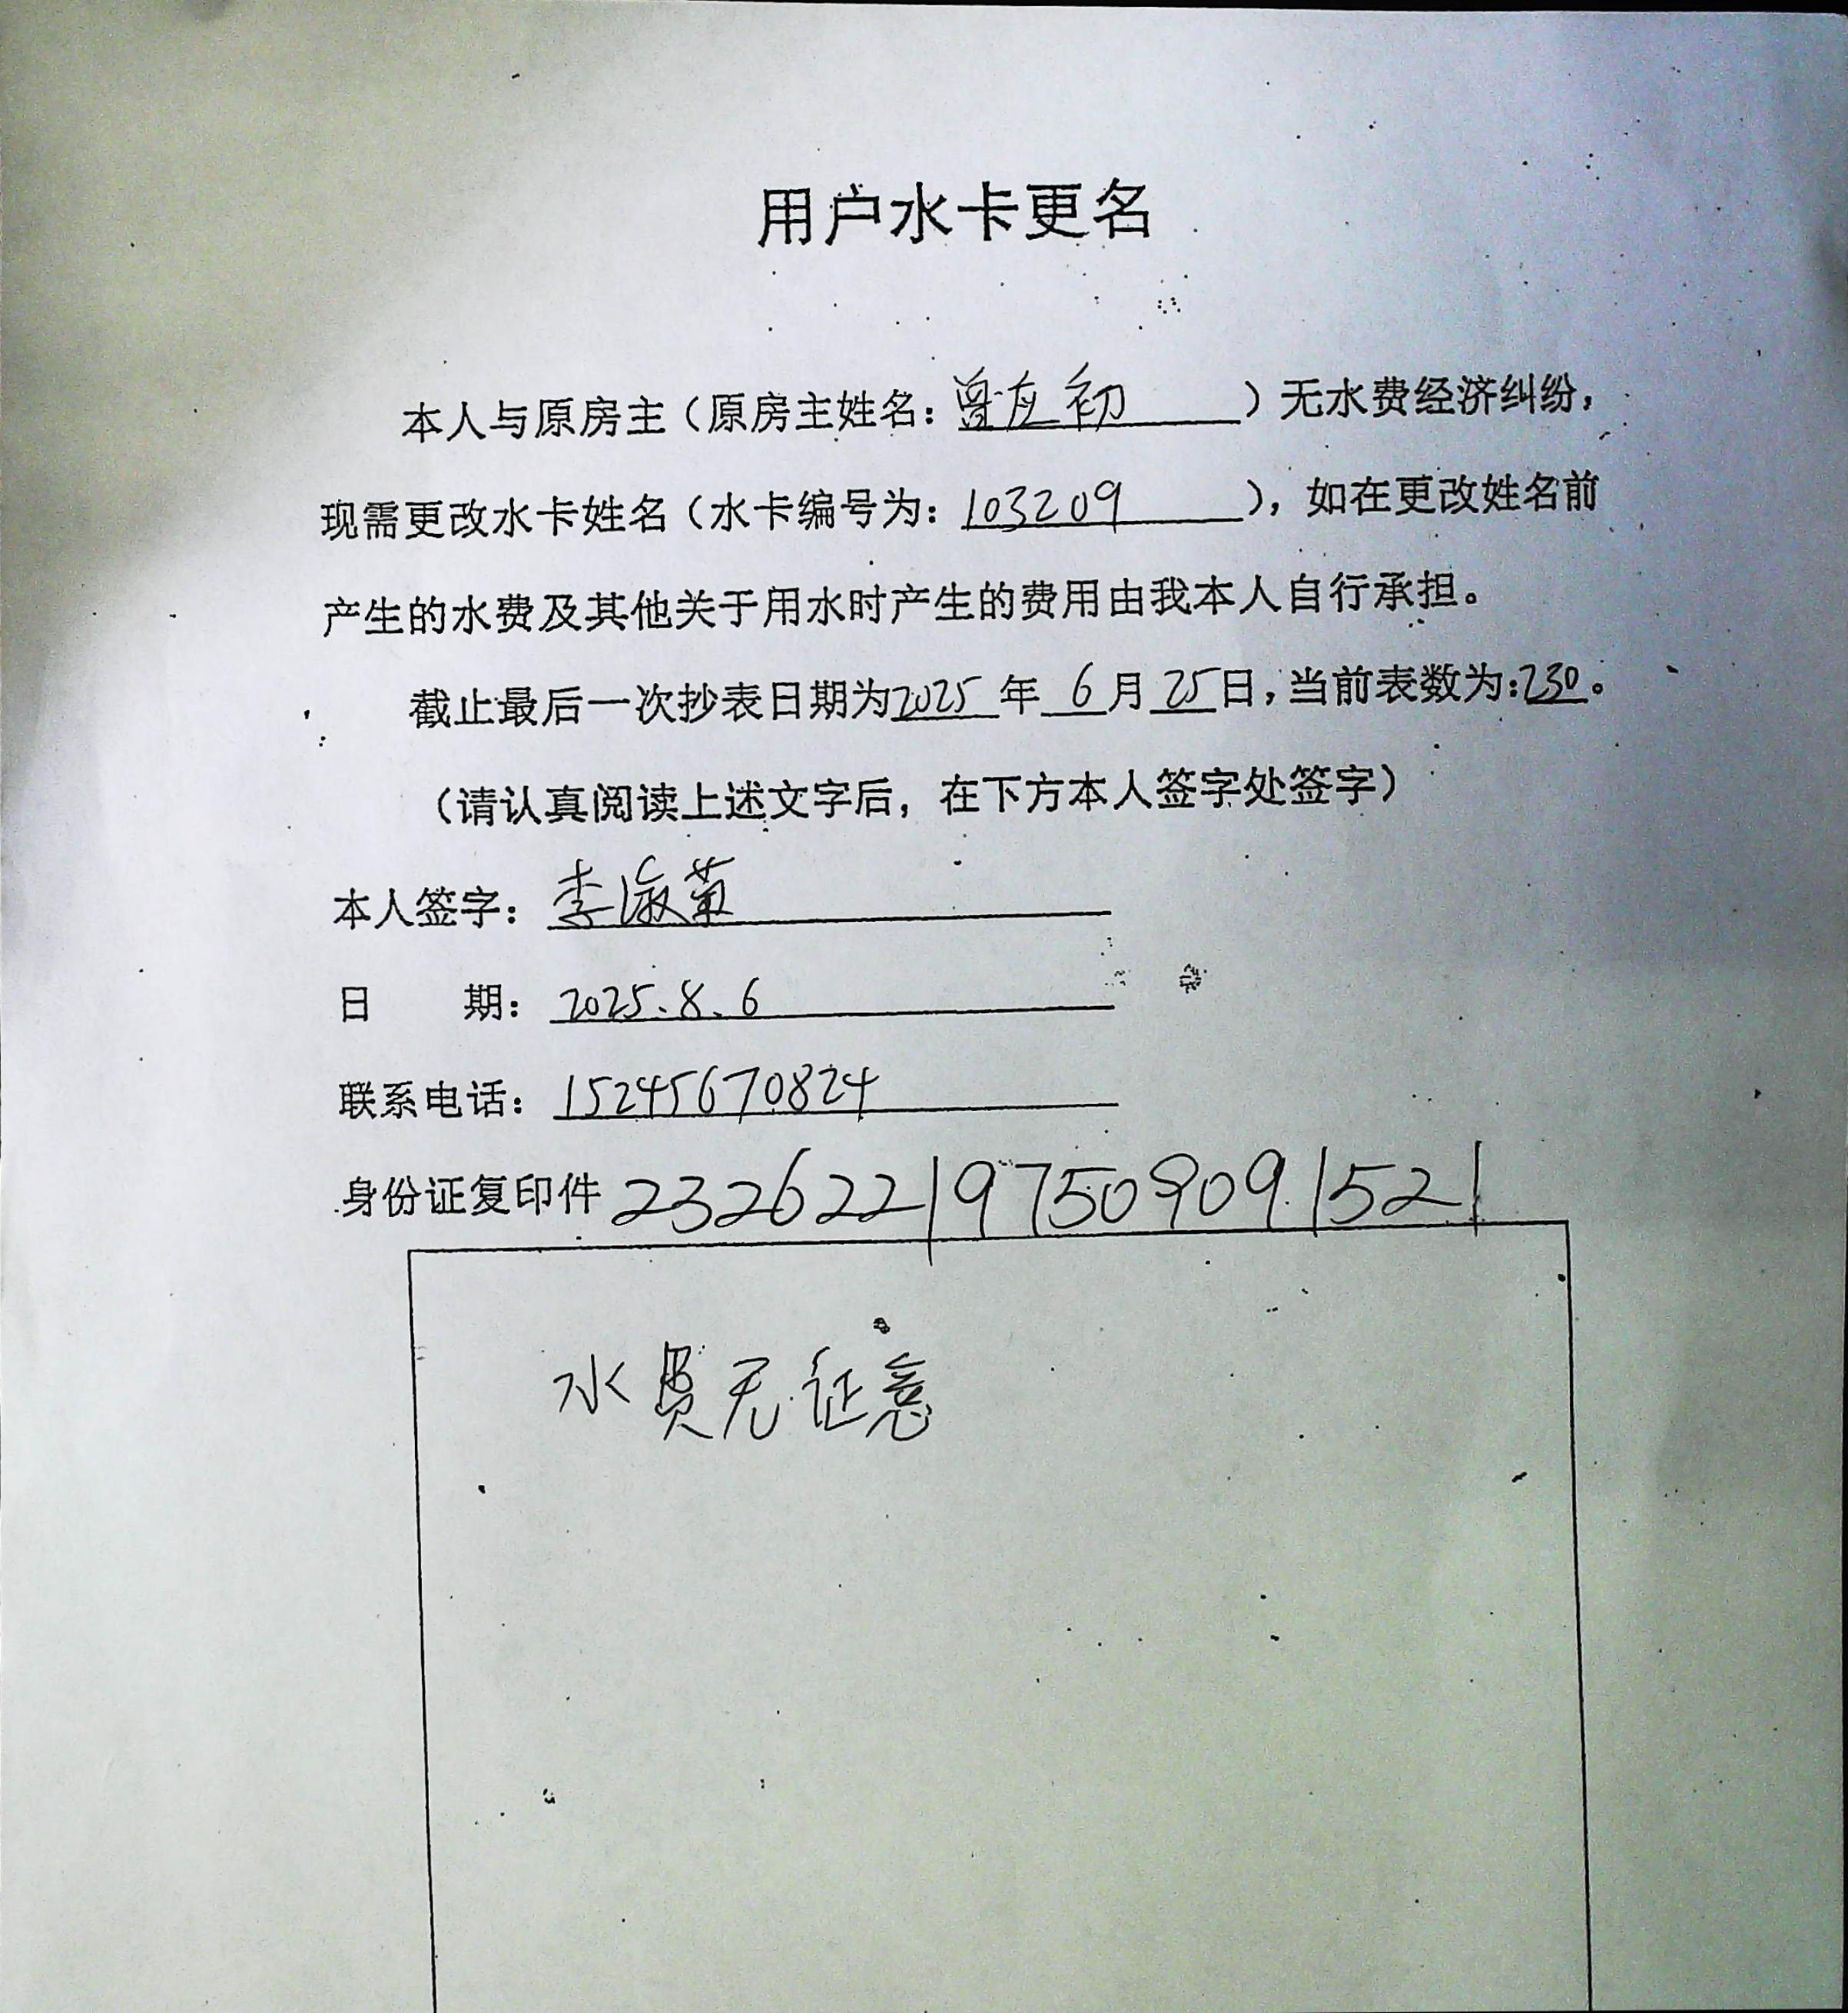 用户水卡更名
本人与原房主（原房主姓名：曾友初）无水费经济纠纷，
现需更改水卡姓名（水卡编号为：103209），如在更改姓名前
产生的水费及其他关于用水时产生的费用由我本人自行承担。
截止最后一次抄表日期为2025年6月25日，当前表数为：230。
（请认真阅读上述文字后，在下方本人签字处签字）
本人签字：李淑菊
日 期：2025.8.6
联系电话：15245670824
身份证复印件 232622197509091521
水费无证意